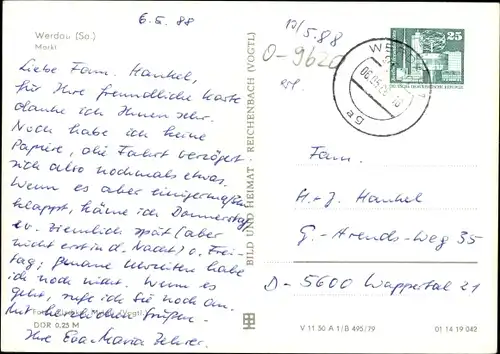 6.5.88
Werdau (Sa.)
Markt
Liebe Fam. Hankel,
für Ihre freundliche Karte
danke ich Ihnen sehr.
Noch habe ich keine
Papiere, die Fahrt verzögert
sich also nochmals etwas.
Wenn es aber einigermaßen
klappt, käme ich Donnerstag
ev. ziemlich spät (aber
nicht erst in d. Nacht) o. Frei-
tag; genaue Uhrzeiten habe
ich noch nicht. Wenn es
geht, rufe ich Sie noch an.
Mit herzlichen Grüßen
DDR 0,25 M
Ihre Eva-Maria
BILD UND HEIMAT REICHENBACH (VOGTL)
10/5.88
O-9620
25
WERDAU
Fam.
H.-J. Hankel
G.-Arends-Weg 35
D-5600 Wuppertal 21
V 11 50 A 1/B 495/79
01 14 19 042